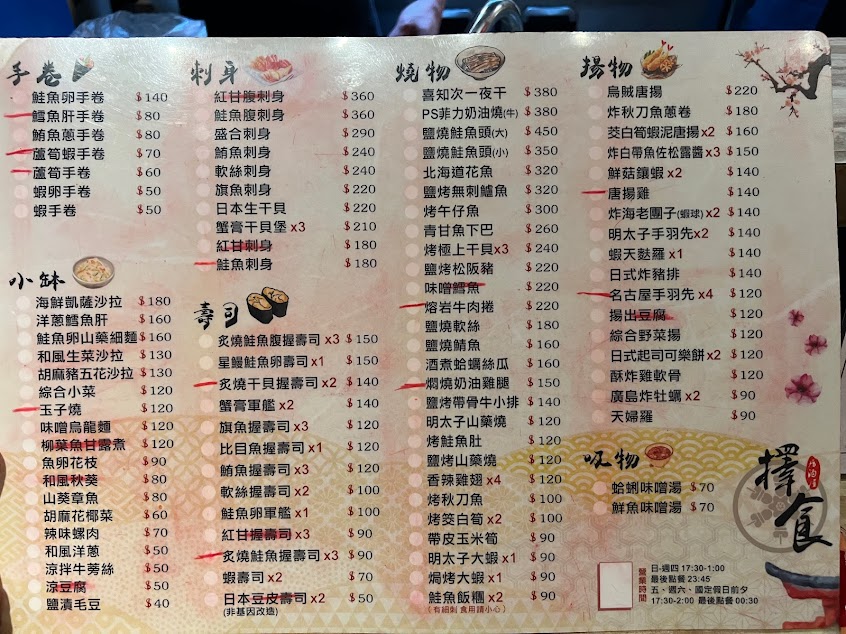 手卷
鮭魚卵手卷 $140
鱈魚肝手卷 $80
鮪魚蔥手卷 $80
蘆筍蝦手卷 $70
蘆筍手卷 $60
蝦卵手卷 $50
蝦手卷 $50
小缽
海鮮凱薩沙拉 $180
洋蔥鱈魚肝 $160
鮭魚卵山藥細麵 $160
和風生菜沙拉 $130
胡麻豬五花沙拉 $130
綜合小菜 $120
玉子燒 $120
味噌烏龍麵 $120
柳葉魚甘露煮 $120
魚卵花枝 $90
和風秋葵 $80
山葵章魚 $80
胡麻花椰菜 $60
辣味螺肉 $70
和風洋蔥 $50
涼拌牛蒡絲 $50
涼豆腐 $50
鹽漬毛豆 $40
刺身
紅甘腹刺身 $360
鮭魚腹刺身 $360
盛合刺身 $290
鮪魚刺身 $240
軟絲刺身 $240
旗魚刺身 $220
日本生干貝 $220
蟹膏干貝堡x3 $210
紅甘刺身 $180
鮭魚刺身 $180
壽司
炙燒鮭魚腹握壽司x3 $150
星鰻鮭魚卵壽司x1 $150
炙燒干貝握壽司x2 $140
蟹膏軍艦x2 $140
旗魚握壽司x3 $120
比目魚握壽司x1 $120
鮪魚握壽司x3 $120
軟絲握壽司x2 $100
鮭魚卵軍艦x1 $100
紅甘握壽司x3 $90
炙燒鮭魚握壽司x3 $90
蝦壽司x2 $70
日本豆皮壽司x2 $50
(非基因改造)
燒物
喜知次一夜干 $380
PS菲力奶油燒(牛) $380
鹽燒鮭魚頭(大) $450
鹽燒鮭魚頭(小) $350
北海道花魚 $320
鹽烤無刺鱸魚 $320
烤午仔魚 $300
青甘魚下巴 $260
烤極上干貝x3 $240
鹽烤松阪豬 $220
味噌鱈魚 $220
熔岩牛肉捲 $220
鹽燒軟絲 $180
鹽燒鯖魚 $160
酒煮蛤蠣絲瓜 $150
燜燒奶油雞腿 $150
鹽烤帶骨牛小排 $140
明太子山藥燒 $120
烤鮭魚肚 $120
鹽烤山藥燒 $120
香辣雞翅x4 $120
烤秋刀魚 $100
烤筊白筍x2 $100
帶皮玉米筍 $90
明太子大蝦x1 $90
焗烤大蝦x1 $90
鮭魚飯糰x2 $90
(有細刺 食用請小心)
揚物
烏賊唐揚 $220
炸秋刀魚蔥卷 $180
茭白筍蝦泥唐揚x2 $160
炸白帶魚佐松露醬x3 $150
鮮菇鑲蝦x2 $140
唐揚雞 $140
炸海老團子(蝦球)x2 $140
明太子手羽先x2 $140
蝦天麩羅x1 $140
日式炸豬排 $140
名古屋手羽先x4 $120
揚出豆腐 $120
綜合野菜揚 $120
日式起司可樂餅x2 $120
酥炸雞軟骨 $120
廣島炸牡蠣x2 $90
天婦羅 $90
吸物
蛤蜊味噌湯 $70
鮮魚味噌湯 $70
擇食
營業時間
日-週四 17:30-1:00
最後點餐 23:45
五、週六、國定假日前夕
17:30-2:00 最後點餐 00:30